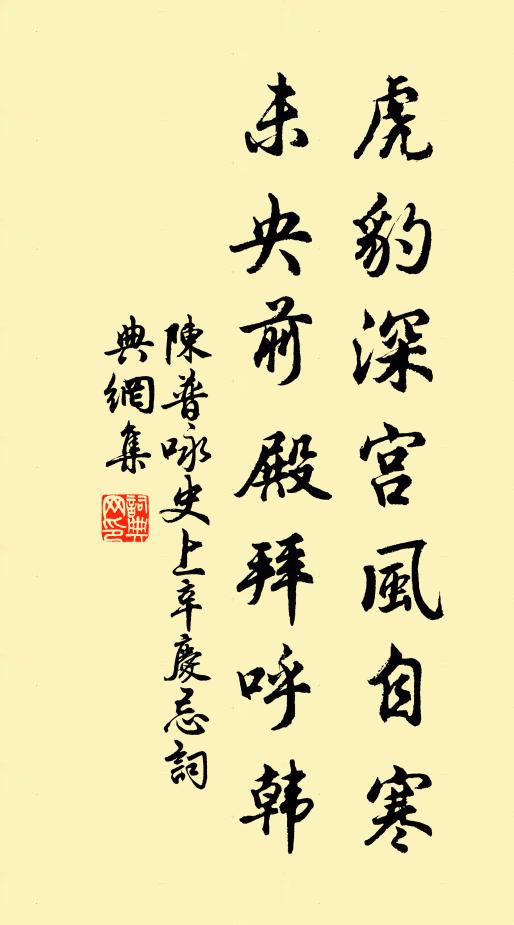 虎豹深宫風自寒
未央前殿拜呼韩
陳普咏史上辛慶忌詞
典網集
詞典网印